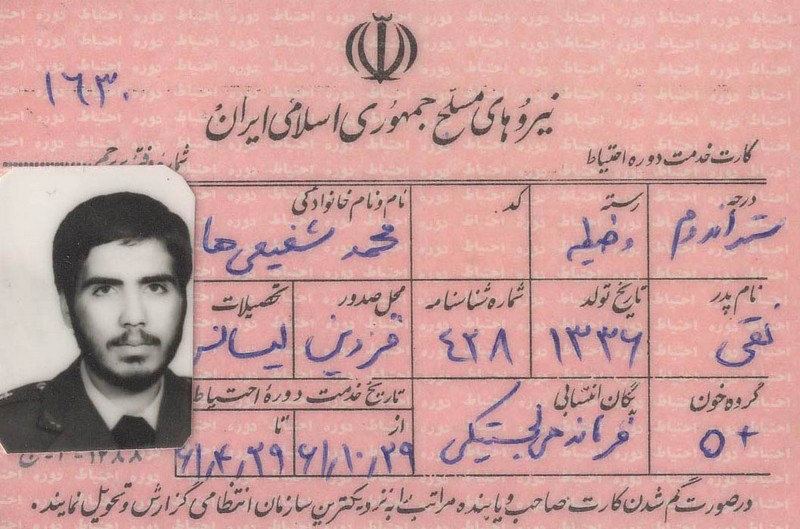 ۱۶۳۰
نیروهای مسلح جمهوری اسلامی ایران
کارت خدمت دوره احتیاط
درجه رسته کد نام و نام خانوادگی
ستواندوم وظیفه محمد شفیعی ها
نام پدر تاریخ تولد شماره شناسنامه محل صدور تحصیلات
تقی ۱۳۳۶ ۴۲۸ قزوین لیسانس
گروه خون یگان انتسابی تاریخ خدمت دورهٔ احتیاط
از تا
O+ فرماندهی لجستیکی ۶۱٫۱۰٫۲۹ ۶۱٫۴٫۲۹
درصورت گم شدن کارت صاحب و یا بنده مراتب را به نزدیکترین سازمان انتظامی گزارش و تحویل نمایند.